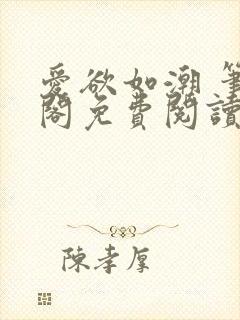 愛欲如潮 筆
閣免費閱讀
陳孝厚